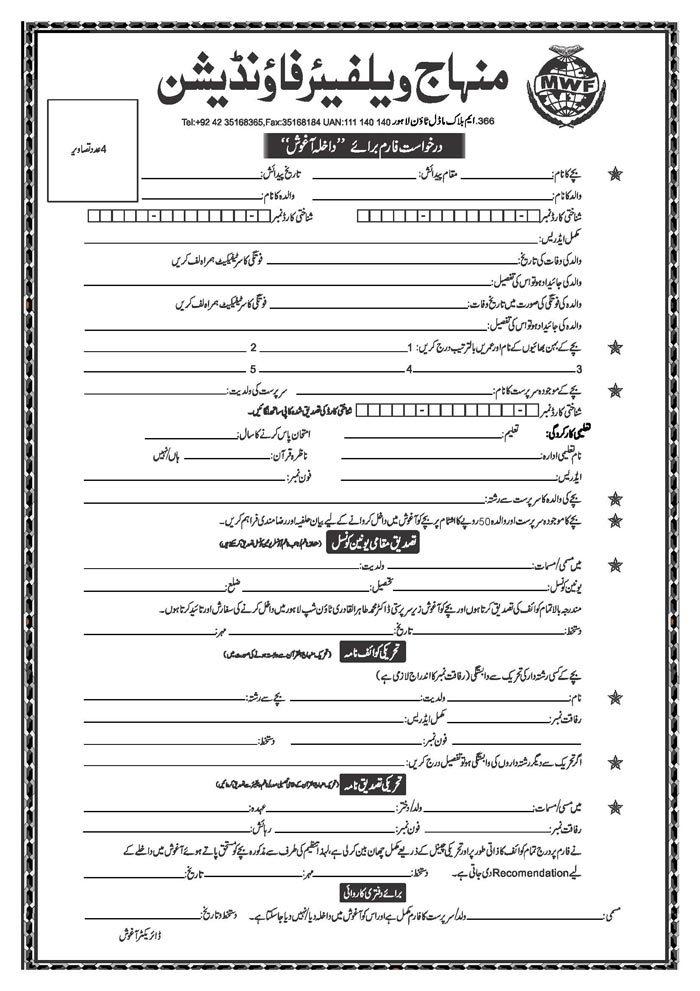 منہاج ویلفیئر فاؤنڈیشن
MWF
366.ایم بلاک ماڈل ٹاؤن لاہور Tel:+92 42 35168365,Fax:35168184 UAN:111 140 140
4 عدد تصاویر
درخواست فارم برائے ”داخلہ آغوش“
بچے کا نام: مقام پیدائش: تاریخ پیدائش:
والد کا نام: والدہ کا نام:
شناختی کارڈ نمبر شناختی کارڈ نمبر
مکمل ایڈریس:
والد کی وفات کی تاریخ: فوتگی کا سرٹیفکیٹ ہمراہ لف کریں
والد کی جائیداد ہو تو اس کی تفصیل:
والدہ کی فوتگی کی صورت میں تاریخ وفات: فوتگی کا سرٹیفکیٹ ہمراہ لف کریں
والدہ کی جائیداد ہو تو اس کی تفصیل:
بچے کے بہن بھائیوں کے نام اور عمریں بالترتیب درج کریں: 1 2
3 4 5
بچے کے موجودہ سرپرست کا نام: سرپرست کی ولدیت:
شناختی کارڈ نمبر شناختی کارڈ کی تصدیق شدہ کاپی ساتھ لگائیں۔
تعلیمی کارکردگی: تعلیم: امتحان پاس کرنے کا سال:
نام تعلیمی ادارہ: ناظرہ قرآن: ہاں/نہیں
ایڈریس: فون نمبر:
بچے کی والدہ کا سرپرست سے رشتہ:
بچے کا موجودہ سرپرست اور والدہ 50 روپے کا اشٹام پر بچے کو آغوش میں داخل کروانے کے لیے بیان حلفیہ اور رضا مندی فراہم کریں۔
تصدیق مقامی یونین کونسل
میں مسمی/مسمات: ولدیت:
یونین کونسل: تحصیل: ضلع:
مندرجہ بالا تمام کوائف کی تصدیق کرتا ہوں اور بچے کو آغوش زیر سرپرستی ڈاکٹر محمد طاہر القادری ٹاؤن شپ لاہور میں داخل کرنے کی سفارش اور تائید کرتا ہوں۔
دستخط: تاریخ: مہر:
تحریکی کوائف نامہ (تحریک منہاج القرآن سے وابستہ ہونے کی صورت میں)
بچے کے کسی رشتہ دار کی تحریک سے وابستگی (رفاقت نمبر کا اندراج لازمی ہے)
نام: ولدیت: بچے سے رشتہ:
رفاقت نمبر: مکمل ایڈریس:
فون نمبر: دستخط:
اگر تحریک سے دیگر رشتہ داروں کی وابستگی ہو تو تفصیل درج کریں:
تحریکی تصدیق نامہ
میں مسمی/مسمات: ولد/دختر: عہدہ:
رفاقت نمبر: فون نمبر: رہائش:
نے فارم پر درج تمام کوائف کا ذاتی طور پر اور تحریکی چینل کے ذریعے مکمل چھان بین کر لی ہے، لہذا تنظیم کی طرف سے مذکورہ بچے کو مستحق پاتے ہوئے آغوش میں داخلے کے
لیے Recomendation دی جاتی ہے۔ دستخط: مہر: تاریخ:
برائے دفتری کاروائی
مسمی: ولد/سرپرست کا فارم مکمل ہے اور اس کو آغوش میں داخلہ دیا/نہیں دیا جا سکتا ہے۔ دستخط و تاریخ:
ڈائریکٹر آغوش